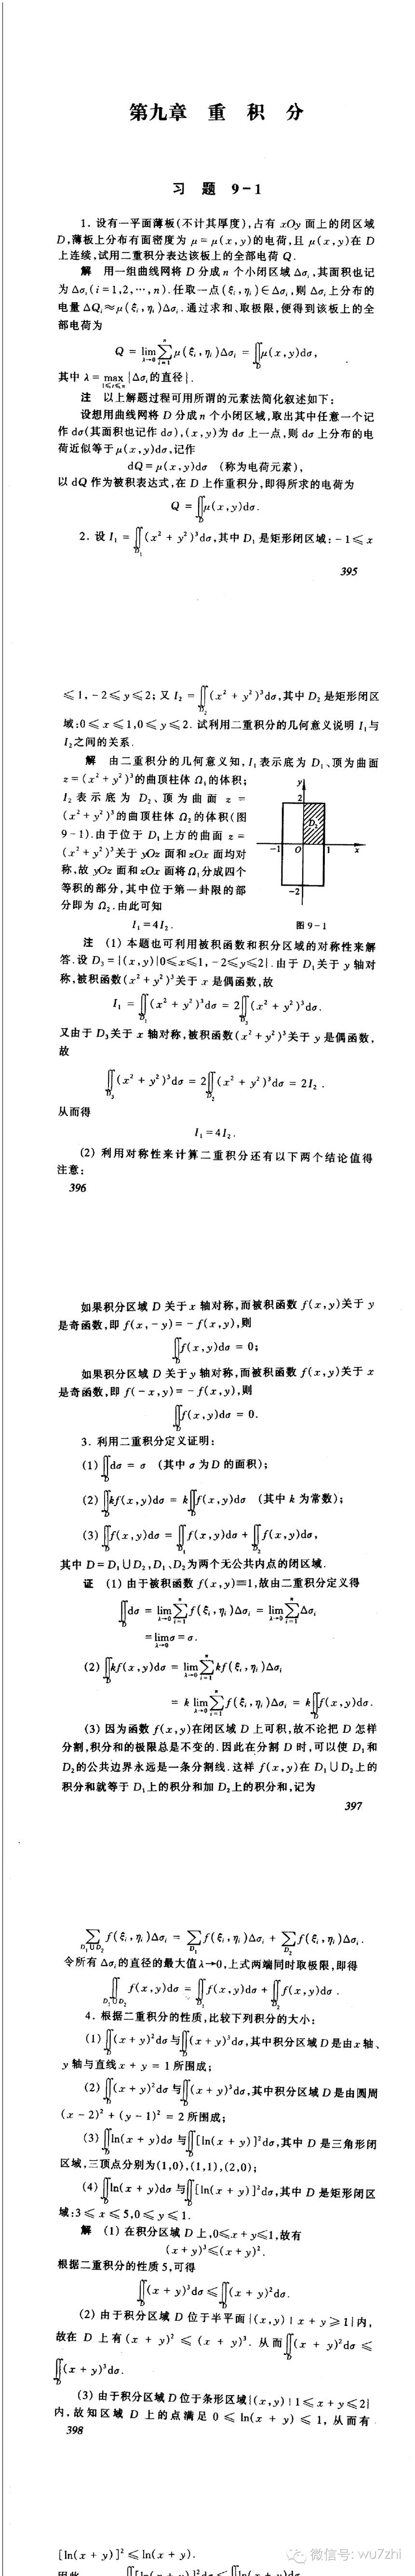 第九章 重 积 分
习 题 9-1
1. 设有一平面薄板(不计其厚度),占有 xOy 面上的闭区域
D,薄板上分布有面密度为 μ=μ(x,y)的电荷,且 μ(x,y)在 D
上连续,试用二重积分表达该板上的全部电荷 Q.
解 用一组曲线网将 D 分成 n 个小闭区域 Δσᵢ,其面积也记
为 Δσᵢ(i=1,2,…,n).任取一点(ξᵢ,ηᵢ)∈Δσᵢ,则 Δσᵢ上分布的
电量 ΔQᵢ≈μ(ξᵢ,ηᵢ)Δσᵢ.通过求和、取极限,便得到该板上的全
部电荷为
Q = lim_{λ→0} ∑_{i=1}^{n} μ(ξᵢ,ηᵢ)Δσᵢ = ∬_D μ(x,y)dσ,
其中 λ = max_{1≤i≤n}{Δσᵢ的直径}.
注 以上解题过程可用所谓的元素法简化叙述如下:
设想用曲线网将 D 分成 n 个小闭区域,取出其中任意一个记
作 dσ(其面积也记作 dσ),(x,y)为 dσ 上一点,则 dσ 上分布的电
荷近似等于 μ(x,y)dσ,记作
dQ=μ(x,y)dσ (称为电荷元素),
以 dQ 作为被积表达式,在 D 上作重积分,即得所求的电荷为
Q = ∬_D μ(x,y)dσ.
2. 设 I₁ = ∬_{D₁}(x² + y²)³dσ,其中 D₁ 是矩形闭区域:-1≤x
395
≤1,-2≤y≤2;又 I₂ = ∬_{D₂}(x² + y²)³dσ,其中 D₂ 是矩形闭区
域:0≤x≤1,0≤y≤2.试利用二重积分的几何意义说明 I₁与
I₂之间的关系.
解 由二重积分的几何意义知,I₁表示底为 D₁、顶为曲面
z=(x²+y²)³的曲顶柱体 Ω₁的体积;
I₂ 表示底为 D₂、顶为曲面 z =
(x²+y²)³的曲顶柱体 Ω₂的体积(图
9-1).由于位于 D₁上方的曲面 z =
(x²+y²)³关于 yOz 面和 zOx 面均对
称,故 yOz 面和 zOx 面将 Ω₁分成四个
等积的部分,其中位于第一卦限的部
分即为 Ω₂.由此可知
I₁=4I₂.
y
2
D₂
-1 O 1 x
-2
图 9-1
注 (1) 本题也可利用被积函数和积分区域的对称性来解
答.设 D₃={(x,y)|0≤x≤1,-2≤y≤2}.由于 D₁关于 y 轴对
称,被积函数(x²+y²)³关于 x 是偶函数,故
I₁ = ∬_{D₁}(x² + y²)³dσ = 2∬_{D₃}(x² + y²)³dσ.
又由于 D₃关于 x 轴对称,被积函数(x²+y²)³关于 y 是偶函数,
故
∬_{D₃}(x² + y²)³dσ = 2∬_{D₂}(x² + y²)³dσ = 2I₂.
从而得
I₁=4I₂.
(2) 利用对称性来计算二重积分还有以下两个结论值得
注意:
396
如果积分区域 D 关于 x 轴对称,而被积函数 f(x,y)关于 y
是奇函数,即 f(x,-y)=-f(x,y),则
∬_D f(x,y)dσ = 0;
如果积分区域 D 关于 y 轴对称,而被积函数 f(x,y)关于 x
是奇函数,即 f(-x,y)=-f(x,y),则
∬_D f(x,y)dσ = 0.
3. 利用二重积分定义证明:
(1) ∬_D dσ = σ (其中 σ 为 D 的面积);
(2) ∬_D kf(x,y)dσ = k∬_D f(x,y)dσ (其中 k 为常数);
(3) ∬_D f(x,y)dσ = ∬_{D₁} f(x,y)dσ + ∬_{D₂} f(x,y)dσ,
其中 D=D₁∪D₂,D₁、D₂为两个无公共内点的闭区域.
证 (1) 由于被积函数 f(x,y)≡1,故由二重积分定义得
∬_D dσ = lim_{λ→0} ∑_{i=1}^{n} f(ξᵢ,ηᵢ)Δσᵢ = lim_{λ→0} ∑_{i=1}^{n} Δσᵢ
=lim_{λ→0} σ=σ.
(2) ∬_D kf(x,y)dσ = lim_{λ→0} ∑_{i=1}^{n} kf(ξᵢ,ηᵢ)Δσᵢ
= k lim_{λ→0} ∑_{i=1}^{n} f(ξᵢ,ηᵢ)Δσᵢ = k∬_D f(x,y)dσ.
(3) 因为函数 f(x,y)在闭区域 D 上可积,故不论把 D 怎样
分割,积分和的极限总是不变的.因此在分割 D 时,可以使 D₁和
D₂的公共边界永远是一条分割线.这样 f(x,y)在 D₁∪D₂上的
积分和就等于 D₁上的积分和加 D₂上的积分和,记为
397
∑_{D₁∪D₂} f(ξᵢ,ηᵢ)Δσᵢ = ∑_{D₁} f(ξᵢ,ηᵢ)Δσᵢ + ∑_{D₂} f(ξᵢ,ηᵢ)Δσᵢ.
令所有 Δσᵢ的直径的最大值 λ→0,上式两端同时取极限,即得
∬_{D₁∪D₂} f(x,y)dσ = ∬_{D₁} f(x,y)dσ + ∬_{D₂} f(x,y)dσ.
4. 根据二重积分的性质,比较下列积分的大小:
(1) ∬_D(x+y)²dσ 与∬_D(x+y)³dσ,其中积分区域 D 是由 x 轴、
y 轴与直线 x + y = 1 所围成;
(2) ∬_D(x+y)²dσ 与∬_D(x+y)³dσ,其中积分区域 D 是由圆周
(x-2)² + (y-1)² = 2 所围成;
(3) ∬_D ln(x+y)dσ 与∬_D[ln(x+y)]²dσ,其中 D 是三角形闭
区域,三顶点分别为(1,0),(1,1),(2,0);
(4) ∬_D ln(x+y)dσ 与∬_D[ln(x+y)]²dσ,其中 D 是矩形闭区
域:3≤x≤5,0≤y≤1.
解 (1) 在积分区域 D 上,0≤x+y≤1,故有
(x+y)³≤(x+y)².
根据二重积分的性质 5,可得
∬_D(x+y)³dσ ≤ ∬_D(x+y)²dσ.
(2) 由于积分区域 D 位于半平面{(x,y)|x+y≥1}内,
故在 D 上有(x+y)² ≤ (x+y)³.从而∬_D(x+y)²dσ ≤
∬_D(x+y)³dσ.
(3) 由于积分区域 D 位于条形区域{(x,y)|1≤x+y≤2}
内,故知区域 D 上的点满足 0 ≤ ln(x+y) ≤ 1,从而有
398
[ln(x+y)]²≤ln(x+y).
微信号: wu7zhi